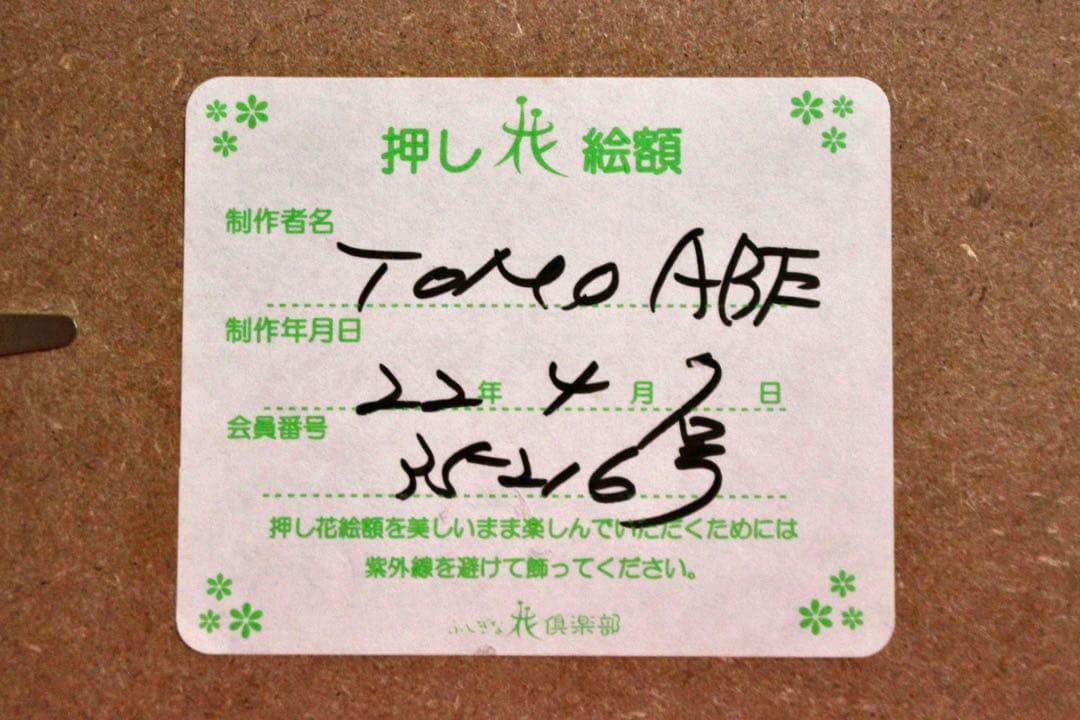 押し花絵額
制作者名
Tomeo ABE
制作年月日
22年 4月 9日
会員番号
35216号
押し花絵額を美しいまま楽しんでいただくためには
紫外線を避けて飾ってください。
ふしぎな花倶楽部